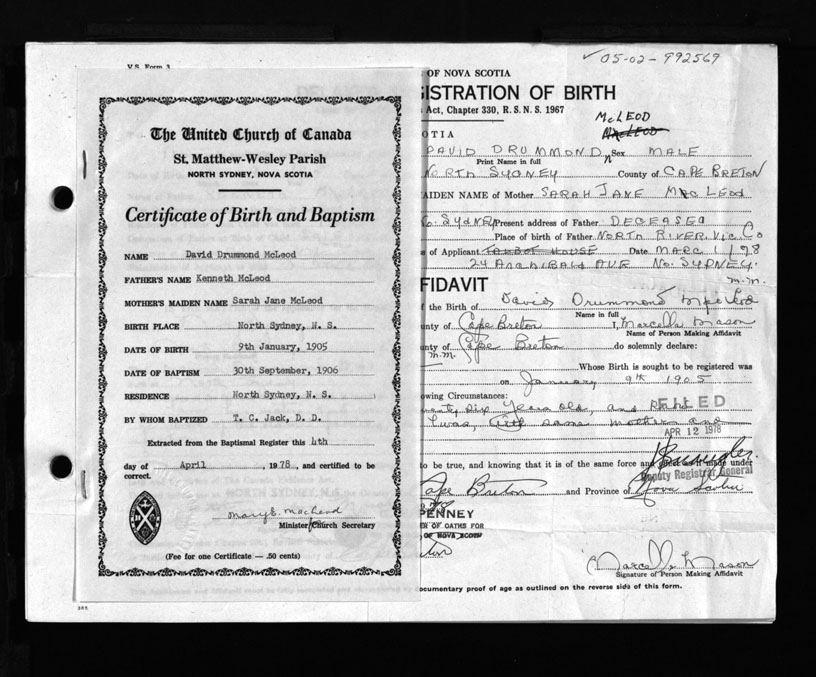 05-02-992569
V.S. Form 3
The United Church of Canada
St. Matthew-Wesley Parish
NORTH SYDNEY, NOVA SCOTIA
Certificate of Birth and Baptism
NAME David Drummond McLeod
FATHER'S NAME Kenneth McLeod
MOTHER'S MAIDEN NAME Sarah Jane McLeod
BIRTH PLACE North Sydney, N. S.
DATE OF BIRTH 9th January, 1905
DATE OF BAPTISM 30th September, 1906
RESIDENCE North Sydney, N. S.
BY WHOM BAPTIZED T. C. Jack, D. D.
Extracted from the Baptismal Register this 4th
day of April, 1978, and certified to be
correct.
Mary E. MacLeod
Minister/Church Secretary
(Fee for one Certificate — .50 cents)
OF NOVA SCOTIA
ISTRATION OF BIRTH
Act, Chapter 330, R. S. N. S. 1967
McLEOD
OTIA MacLEOD
DAVID DRUMMOND Sex MALE
Print Name in full
NORTH SYDNEY County of CAPE BRETON
AIDEN NAME of Mother SARAH JANE McLEOD
No. SYDNEY Present address of Father DECEASED
Place of birth of Father NORTH RIVER, Vic. Co
s of Applicant TALBOT HOUSE Date MARC 1/98
24 ARCHIBALD AVE No. SYDNEY.
m.m.
FIDAVIT
f the Birth of David Drummond McLeod
Name in full
unty of Cape Breton I, Marcella Mason
Name of Person Making Affidavit
unty of Cape Breton do solemnly declare:
m.m.
Whose Birth is sought to be registered was
on January 9th 1905
owing Circumstances:
years old, and
FILED
I was, same mother and
APR 12 1978
to be true, and knowing that it is of the same force and effect as if made under
Deputy Registrar General
Cape Breton and Province of Nova Scotia
PENNEY
ER OF OATHS FOR
OF NOVA SCOTIA
Marcella Mason
Signature of Person Making Affidavit
ocumentary proof of age as outlined on the reverse side of this form.